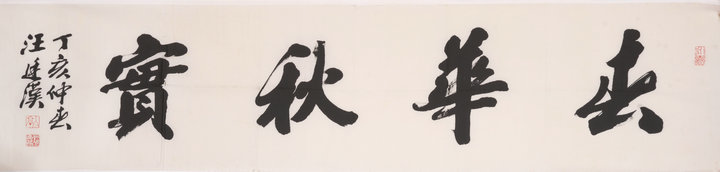 春華秋實
丁亥仲春
汪廷漢